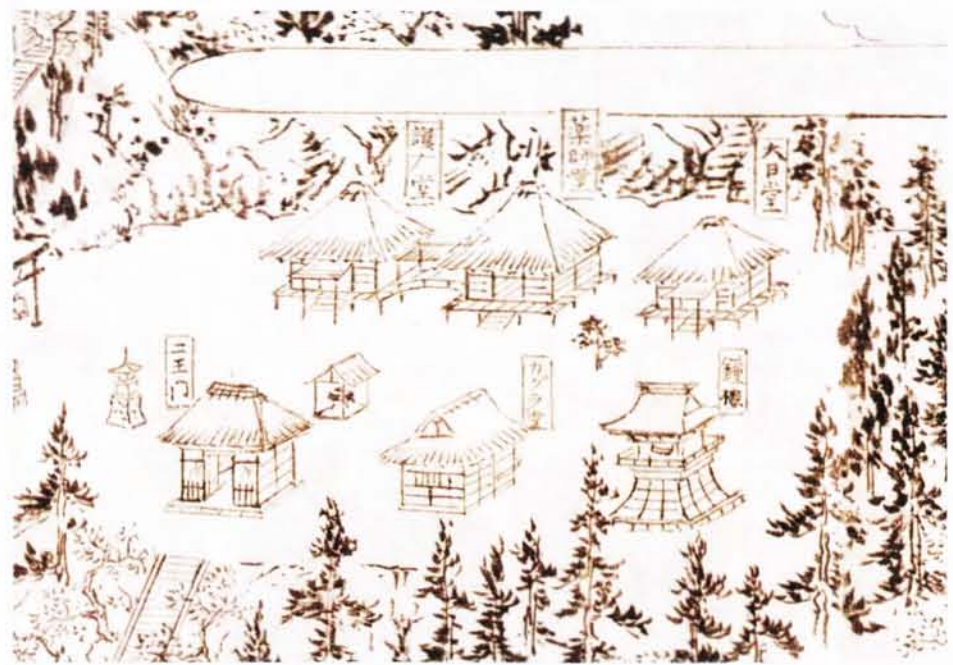 護ノ堂
薬師堂
大日堂
二王门
カツラ堂
鐘楼